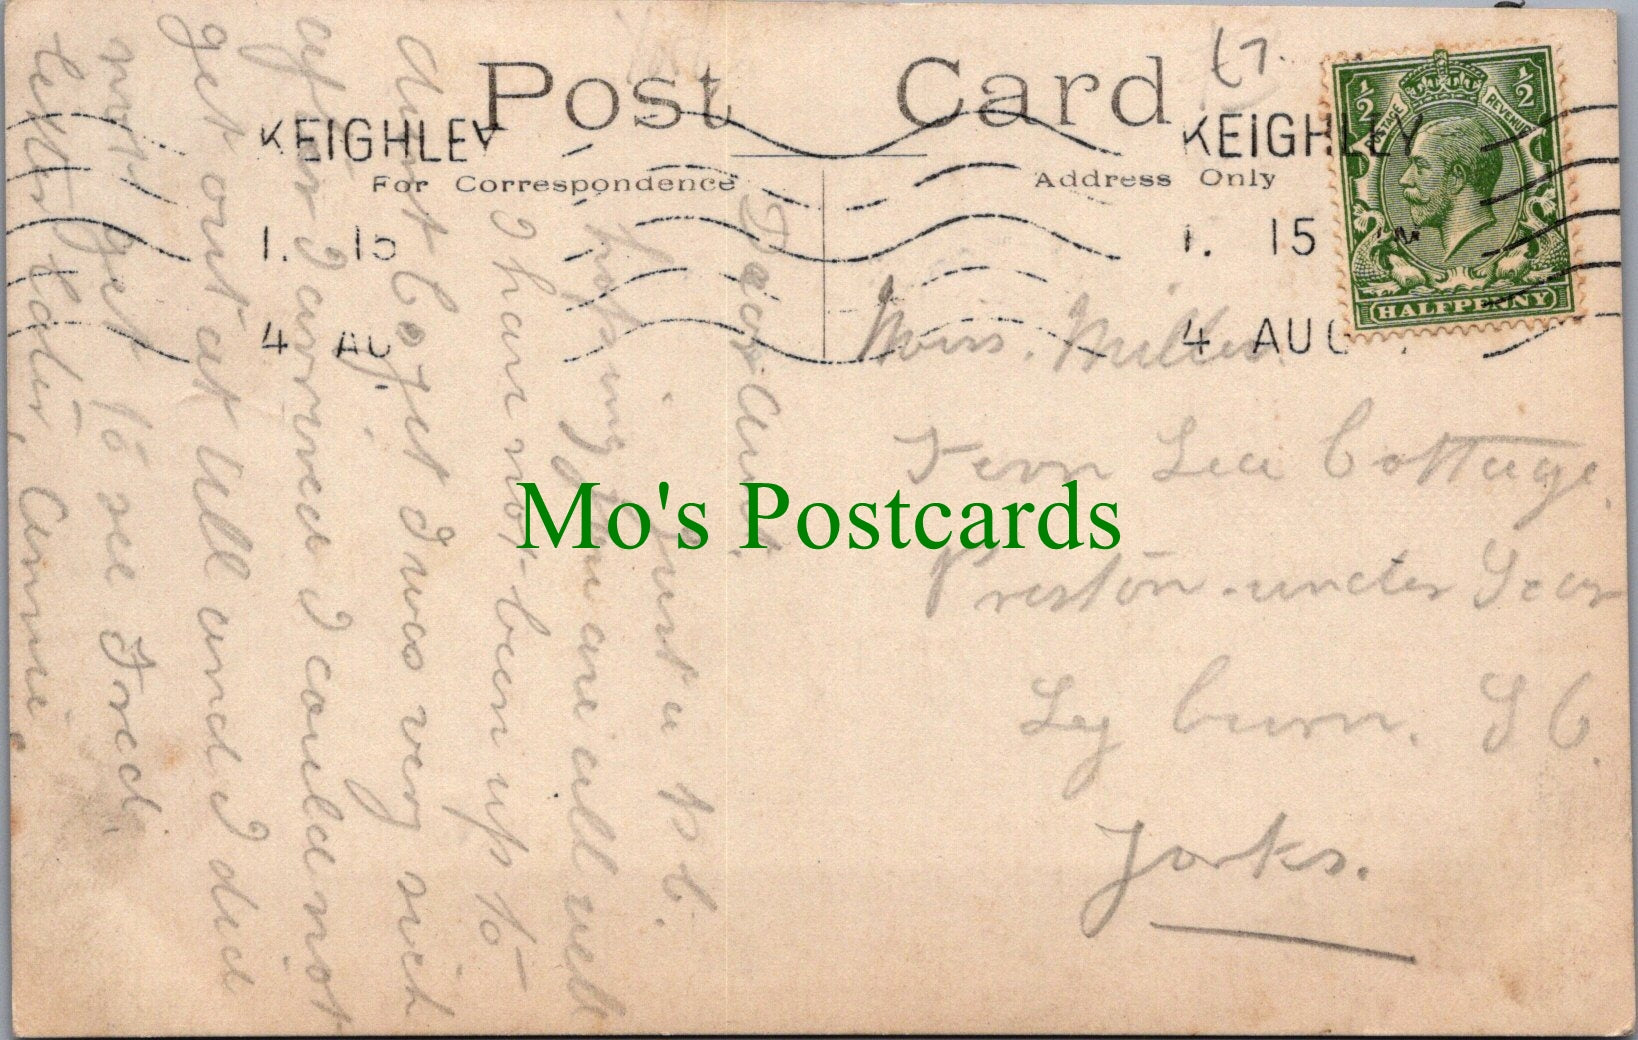 Post Card
For Correspondence
Address Only
KEIGHLEY
1. 15
4 AU
KEIGHLEY
1. 15
4 AUG
½ ½
POSTAGE REVENUE
HALFPENNY
Dear Aunt.
Just a P.C.
hoping you are all well
I have not been up to
Aunt Cojit I was very sick
after I arrived I could not
get out at all and I did
not get to see Fred,
letter later, Annie.
Miss. Miller
Fern Lea Cottage.
Preston-under Scar
Ley burn. S O.
Yorks.
Mo's Postcards